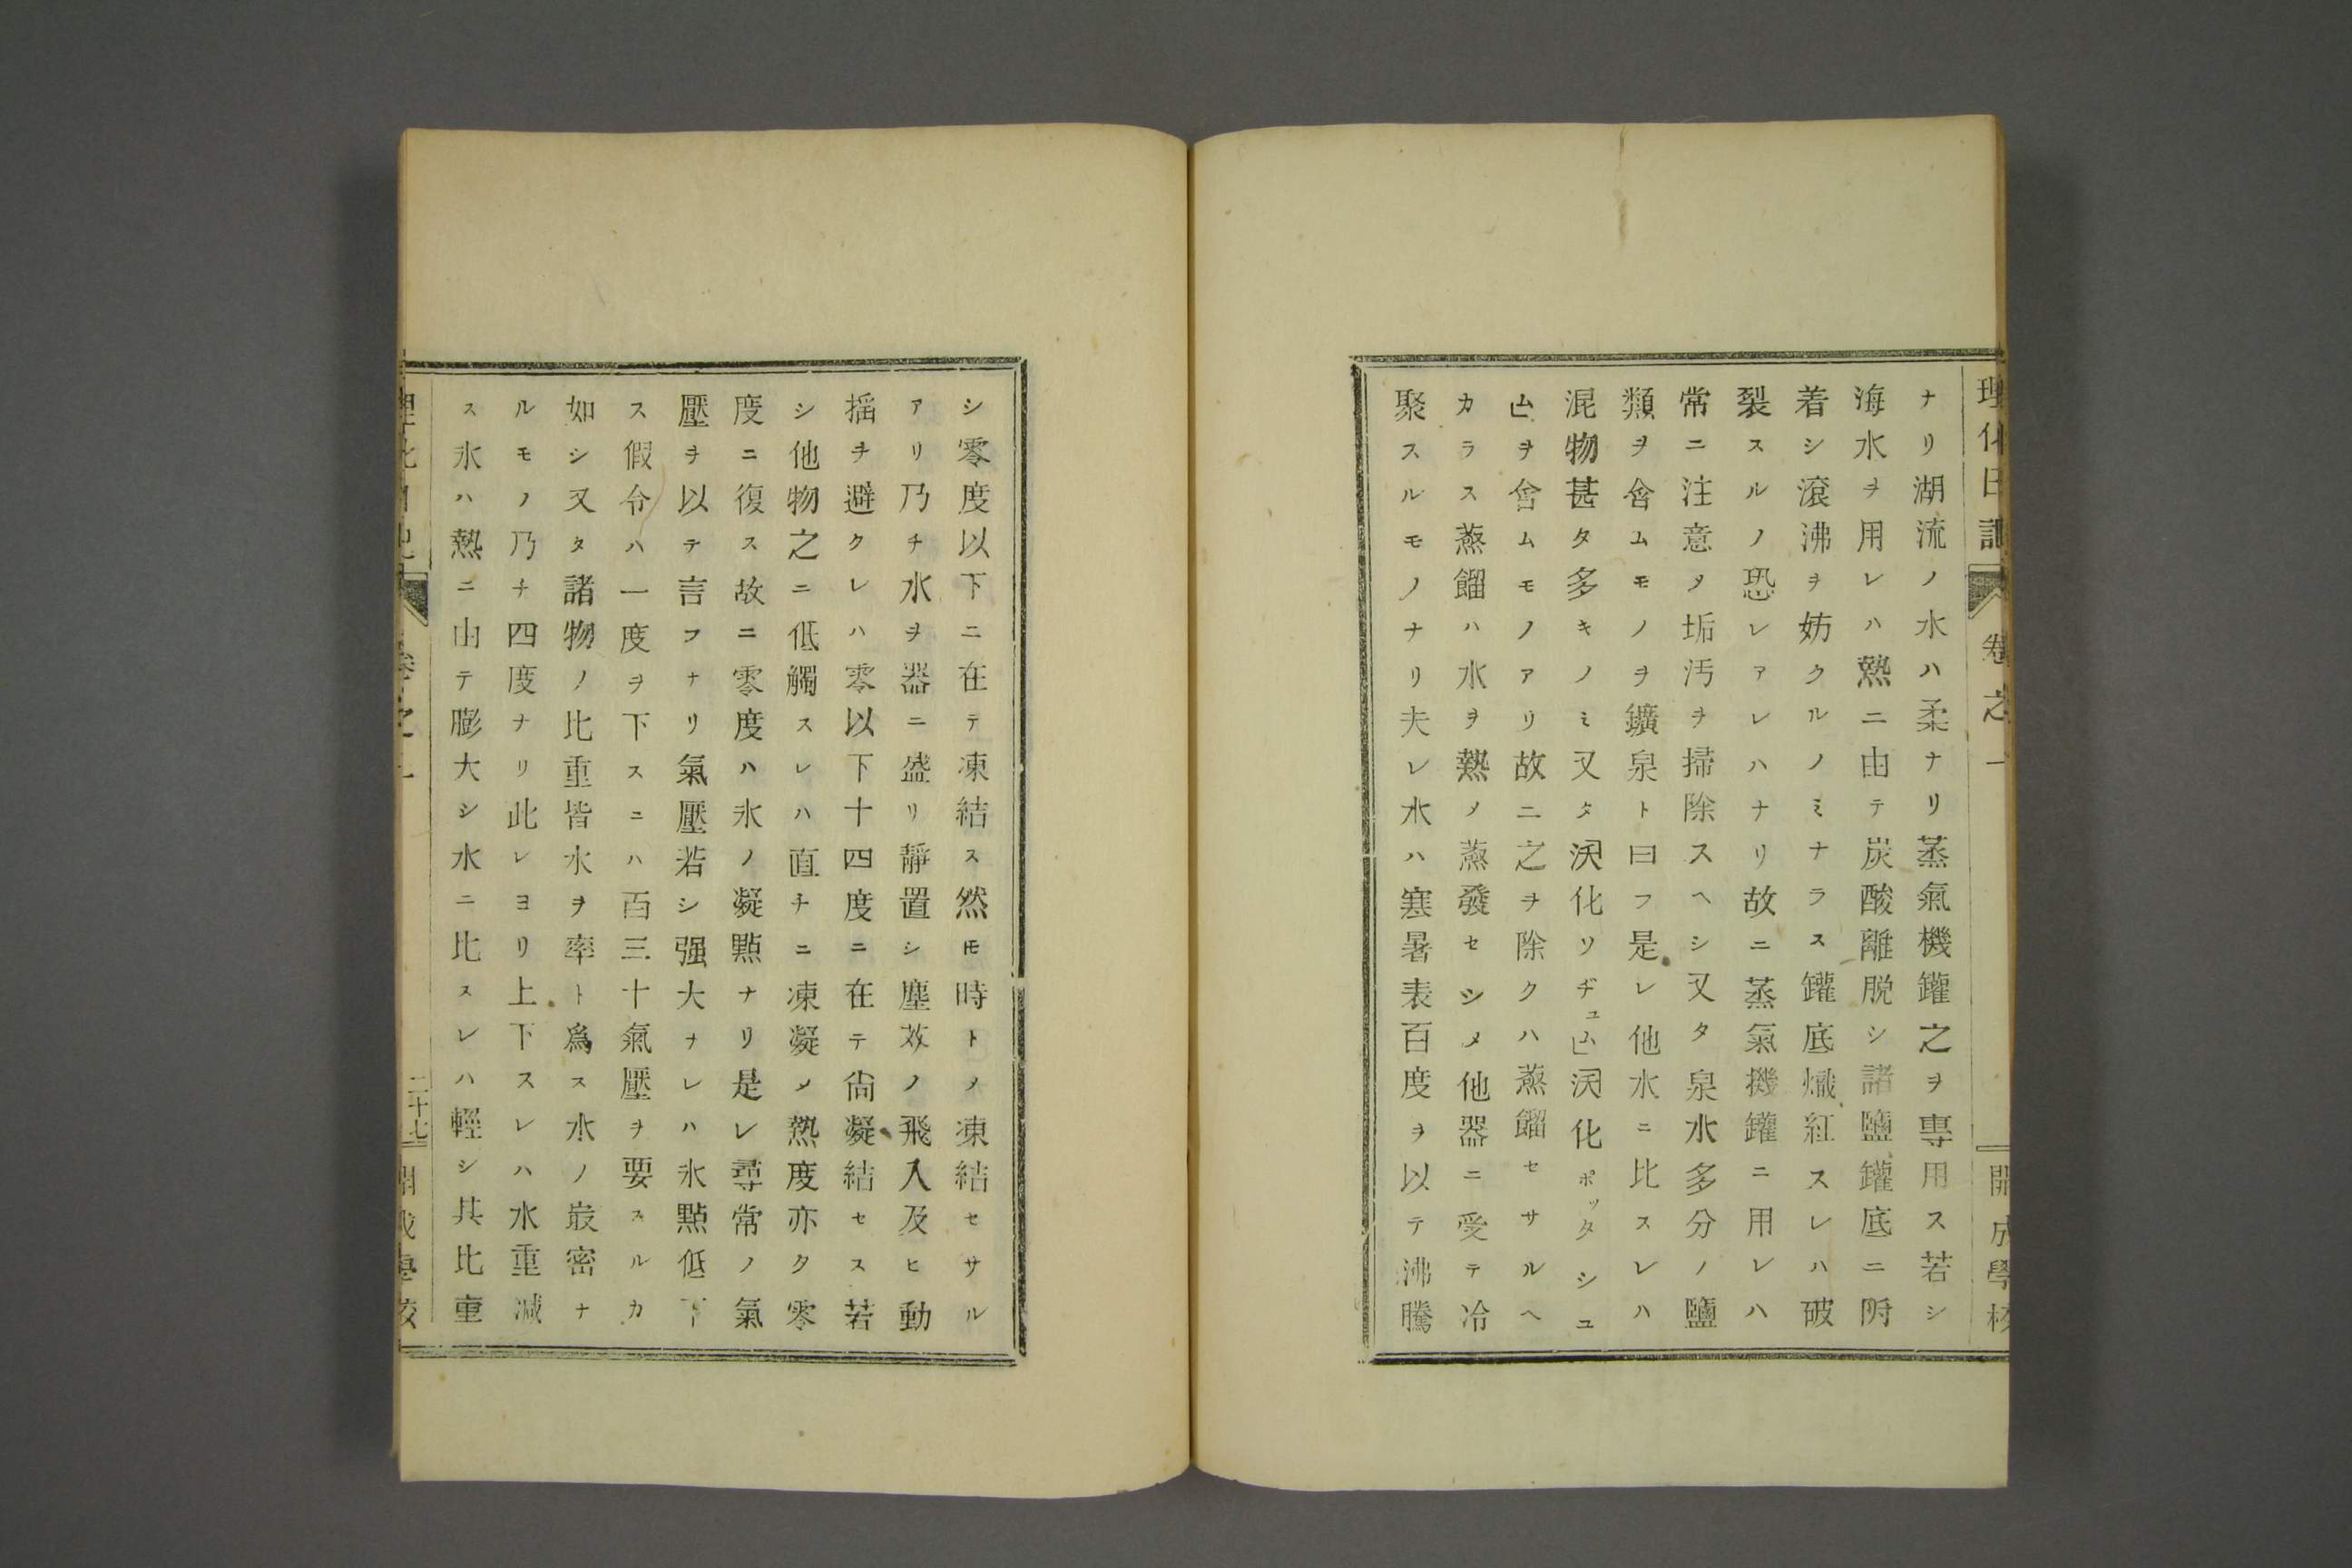 理化日記 卷之一 開成學校
ナリ湖流ノ水ハ柔ナリ蒸氣機鑵之ヲ專用ス若シ
海水ヲ用レハ熱ニ由テ炭酸離脱シ諸鹽鑵底ニ附
着シ滾沸ヲ妨クルノミナラス鑵底熾紅スレハ破
裂スルノ恐レアレハナリ故ニ蒸氣機鑵ニ用レハ
常ニ注意メ垢汚ヲ掃除スヘシ又タ泉水多分ノ鹽
類ヲ含ムモノヲ鑛泉ト曰フ是レ他水ニ比スレハ
混物甚タ多キノミ又タ㳶化ソヂュム㳶化ポッタシュ
ムヲ含ムモノアリ故ニ之ヲ除クハ蒸餾セサルヘ
カラス蒸餾ハ水ヲ熱メ蒸發セシメ他器ニ受テ冷
聚スルモノナリ夫レ水ハ寒暑表百度ヲ以テ沸騰
シ零度以下ニ在テ凍結ス然𪜈時トメ凍結セサル
アリ乃チ水ヲ器ニ盛リ靜置シ塵芥ノ飛入及ヒ動
搖ヲ避クレハ零以下十四度ニ在テ尙凝結セス若
シ他物之ニ低觸スレハ直チニ凍凝メ熱度亦タ零
度ニ復ス故ニ零度ハ氷ノ凝點ナリ是レ尋常ノ氣
壓ヲ以テ言フナリ氣壓若シ强大ナレハ氷點低下
ス假令ハ一度ヲ下スニハ百三十氣壓ヲ要スルカ
如シ又タ諸物ノ比重皆水ヲ率ト爲ス水ノ最密ナ
ルモノ乃チ四度ナリ此レヨリ上下スレハ水重減
ス氷ハ熱ニ由テ膨大シ水ニ比スレハ輕シ其比重
理化日記 卷之一 二十七 開成學校